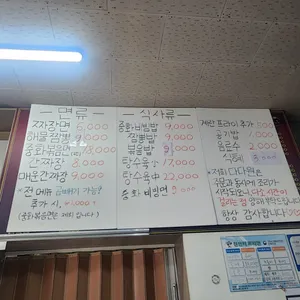 - 면류 -
짜장면 6,000
해물짬뽕 9,000
간짜장 8,000
매운간짜장 9,000
* 전 메뉴 곱빼기 가능
추가 시, +1,000
(중화볶음면은 제외 입니다)
- 식사류 -
중화비빔밥 9,000
짬뽕밥 9,000
볶음밥
탕수육 小 17,000
탕수육 中 22,000
중화비빔면 9,000
계란 프라이 추가
공기밥 1,000
음료수
* 저희 다다원은
주문과 동시에 조리가
시작되오니 다소 시간이
걸리는 점 양해 드립니다
항상 감사합니다